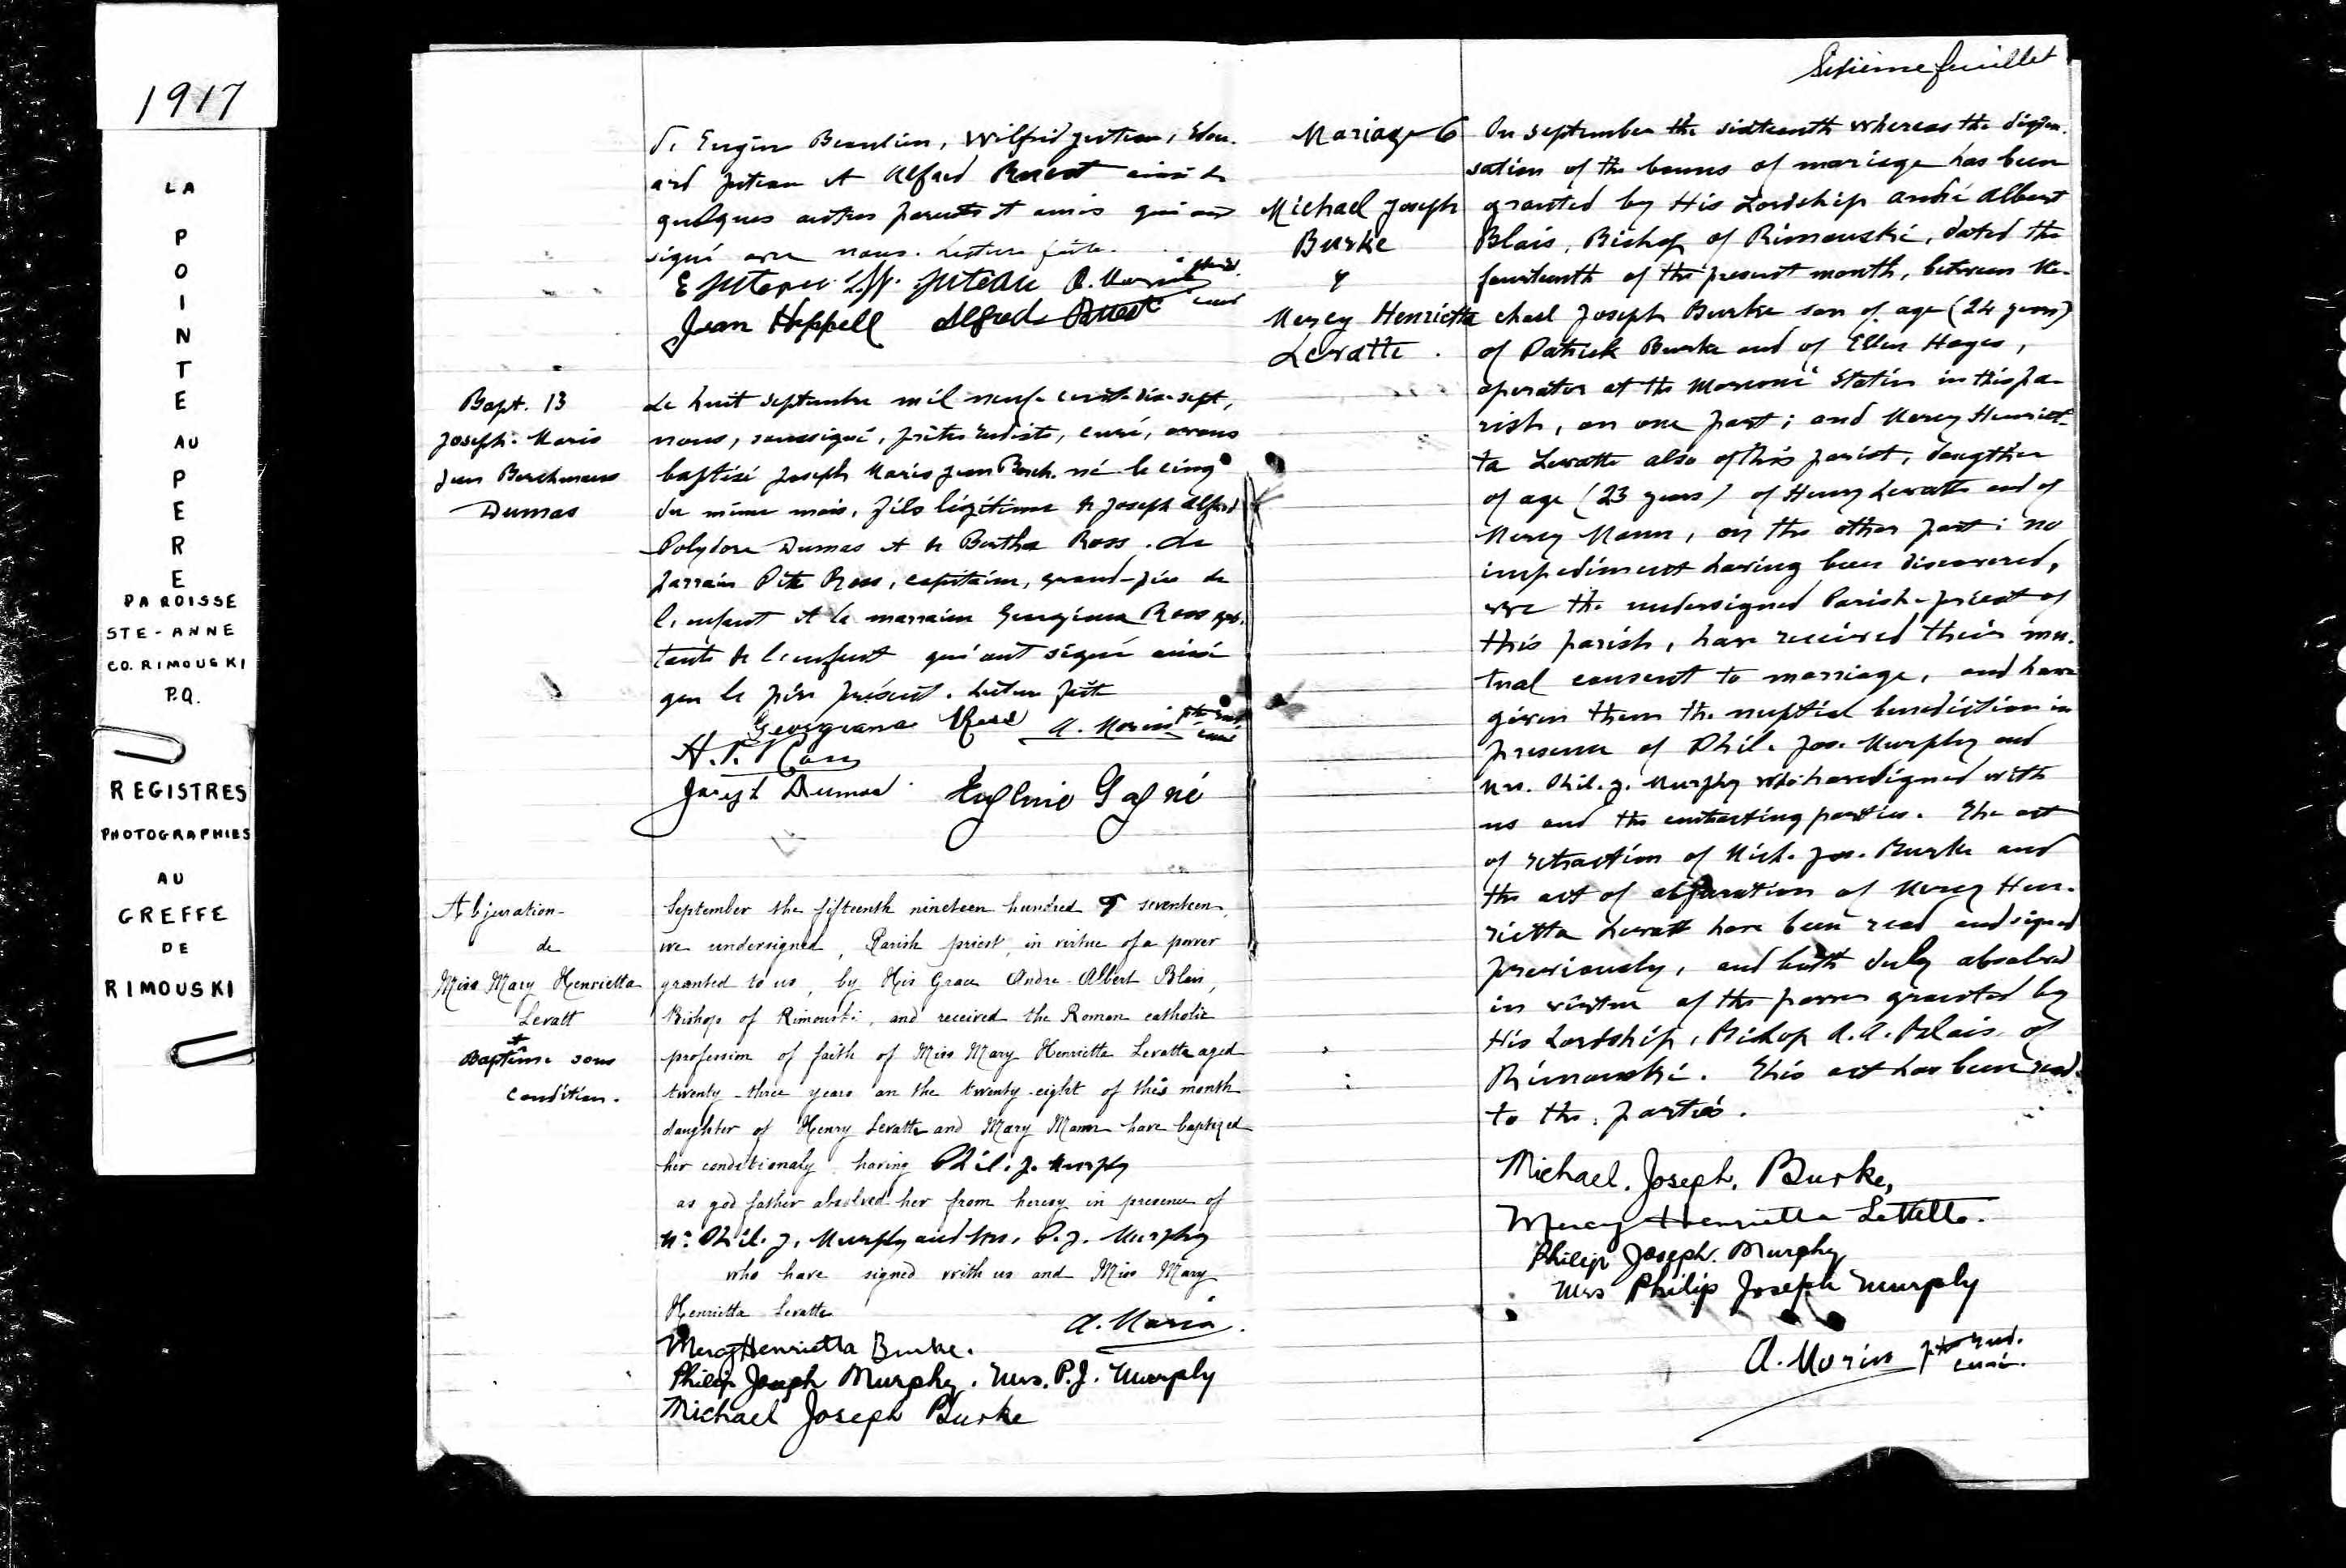 1917
LA
POINTE
AU
PERE
PAROISSE
STE-ANNE
CO. RIMOUSKI
P.Q.
REGISTRES
PHOTOGRAPHIES
AU
GREFFE
DE
RIMOUSKI
Beaulieu, Wilfrid Juteau, Edou-
ard Juteau et Alfred ainsi de
quelques autres parents et amis qui ont
signé avec nous. Lecture faite.
E Juteau Juteau A. Morin
Jean Heppell Alfred
Bapt. 13
Joseph-Marie
Jean Berchmans
Dumas
Le huit septembre mil neuf cent dix-sept,
nous, soussigné, prêtre eudiste, curé, avons
baptisé Joseph Marie Jean Berch. né le cinq
du même mois, fils légitime de Joseph Alfred
Polydore Dumas et de Bertha Ross. Le
parrain Pite Ross, capitaine, grand-père de
l'enfant et la marraine Georgiana Ross
tante de l'enfant qui ont signé ainsi
que le père présent. Lecture faite
Georgiana Ross A. Morin ptre eud. curé
Joseph Dumas Eugénie Gagné
Abjuration
de
Miss Mary Henrietta
Levatt
et
Baptême sous
condition.
September the fifteenth nineteen hundred & seventeen,
we undersigned, Parish priest, in virtue of a power
granted to us, by His Grace Andre-Albert Blais,
Bishop of Rimouski, and received the Roman catholic
profession of faith of Miss Mary Henrietta Levatte aged
twenty-three years on the twenty-eight of this month
daughter of Henry Levatte and Mary Mann have baptized
her conditionaly having Phil. J. Murphy
as god father absolved her from heresy in presence of
Mr. Phil. J. Murphy and Mrs. P. J. Murphy
who have signed with us and Miss Mary
Henrietta Levatte
A. Morin.
Mercy Henrietta Burke.
Philip Joseph Murphy. Mrs. P.J. Murphy
Michael Joseph Burke
feuillet
Mariage 6
Michael Joseph
Burke
&
Mercy Henrietta
Levatte.
On September the sixteenth whereas the dispen-
sation of the banns of mariage has been
granted by His Lordship André Albert
Blais, Bishop of Rimouski, dated the
fourteenth of the present month, between Mi-
chael Joseph Burke son of age (24 years)
of Patrick Burke and of Ellen Hayes,
operator at the Marconi Station in this pa-
rish, on one part; and Mercy Henriet-
ta Levatte also of this parish, daughter
of age (23 years) of Henry Levatte and of
Mercy Mann, on the other part: no
impediment having been discovered,
we the undersigned Parish-priest of
this parish, have received their mu-
tual consent to marriage, and have
given them the nuptial benediction in
presence of Phil. Jos. Murphy and
Mrs. Phil. J. Murphy who have signed with
us and the contracting parties. The act
of retraction of Mich. Jos. Burke and
the act of abjuration of Mercy Hen-
rietta Levatt have been read and signed
previously, and both duly absolved
in virtue of the power granted by
His Lordship, Bishop A. A. Blais of
Rimouski. This act has been read
to the parties.
Michael. Joseph. Burke,
Mercy Henrietta LeVatte.
Philip Joseph. Murphy
Mrs Philip Joseph Murphy
A. Morin ptre eud.
curé.